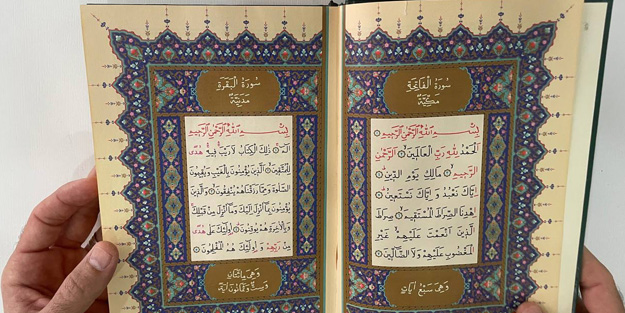 سُورَةُ الْفَاتِحَةِ
مَكِّيَّةٌ
بِسْمِ اللهِ الرَّحْمٰنِ الرَّحِيمِ ۝
اَلْحَمْدُ لِلّٰهِ رَبِّ الْعَالَمِينَ ۝ اَلرَّحْمٰنِ
الرَّحِيمِ ۝ مَالِكِ يَوْمِ الدِّينِ ۝
اِيَّاكَ نَعْبُدُ وَاِيَّاكَ نَسْتَعِينُ ۝
اِهْدِنَا الصِّرَاطَ الْمُسْتَقِيمَ ۝ صِرَاطَ
الَّذِينَ اَنْعَمْتَ عَلَيْهِمْ غَيْرِ
الْمَغْضُوبِ عَلَيْهِمْ وَلَا الضَّالِّينَ ۝
وَهِيَ سَبْعُ آيَاتٍ
سُورَةُ الْبَقَرَةِ
مَدَنِيَّةٌ
بِسْمِ اللهِ الرَّحْمٰنِ الرَّحِيمِ
الٓمٓ ۝ ذٰلِكَ الْكِتَابُ لَا رَيْبَ فِيهِ هُدًى
لِلْمُتَّقِينَ ۝ اَلَّذِينَ يُؤْمِنُونَ بِالْغَيْبِ وَيُقِيمُونَ
الصَّلٰوةَ وَمِمَّا رَزَقْنَاهُمْ يُنْفِقُونَ ۝ وَالَّذِينَ
يُؤْمِنُونَ بِمَا اُنْزِلَ اِلَيْكَ وَمَا اُنْزِلَ مِنْ قَبْلِكَ
وَبِالْاٰخِرَةِ هُمْ يُوقِنُونَ ۝ اُولٰئِكَ عَلٰى هُدًى
مِنْ رَبِّهِمْ وَاُولٰئِكَ هُمُ الْمُفْلِحُونَ ۝
وَهِيَ مِائَتَانِ
وَسِتٌّ وَثَمَانُونَ آيَةً